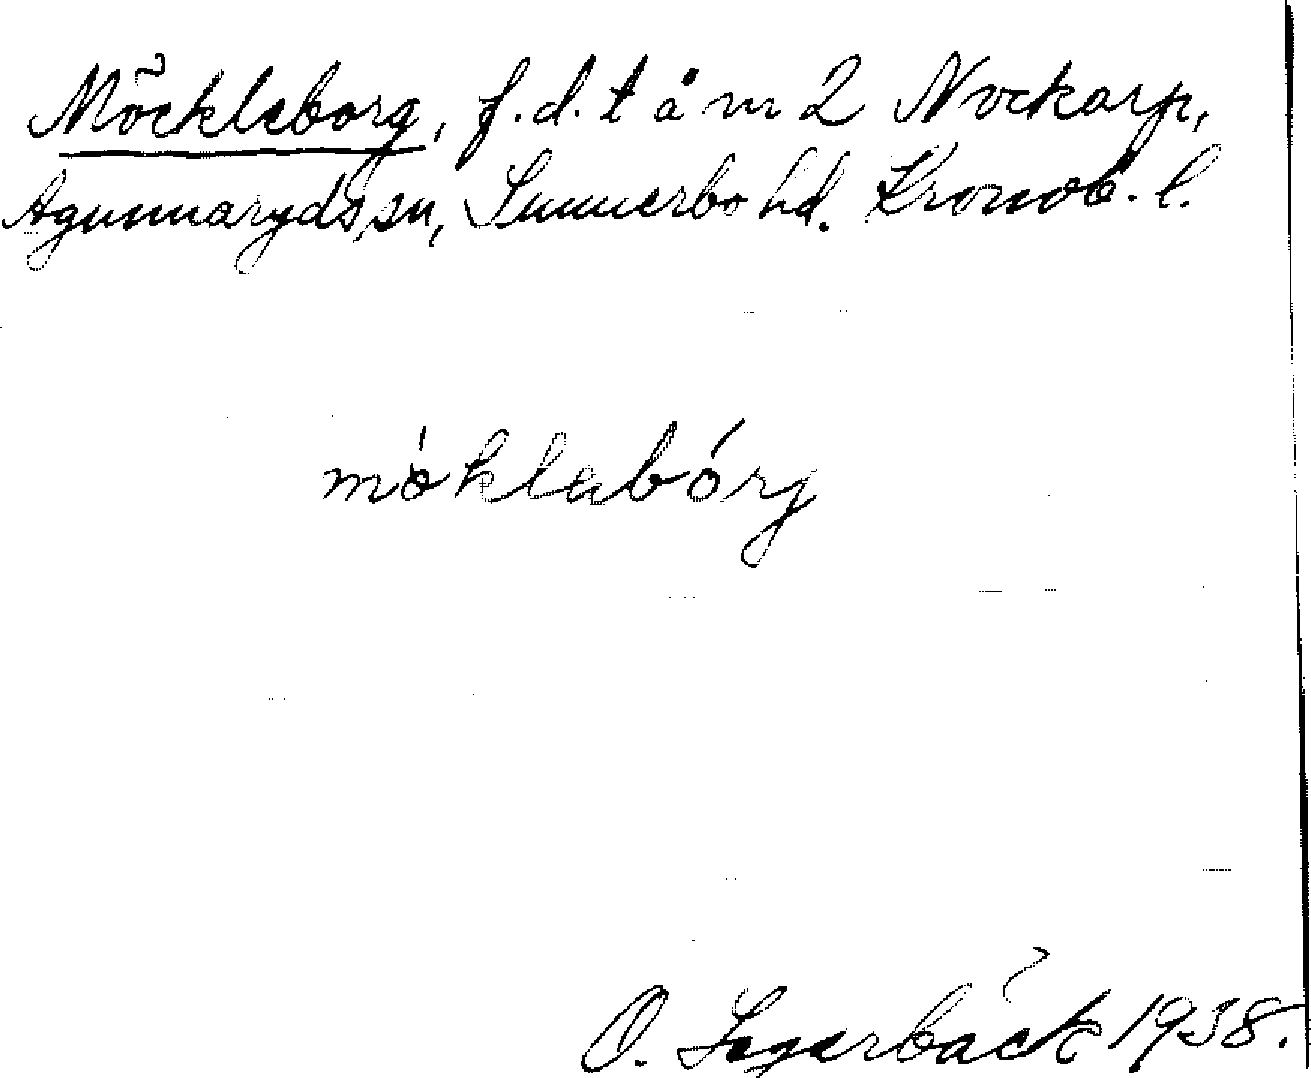 Möckleborg, f.d. t å nr 2 Nockarp,
Agunnaryds sn, Sunnerbo hd. Kronob. l.
móklabórg
O. Lagerbäck 1938.